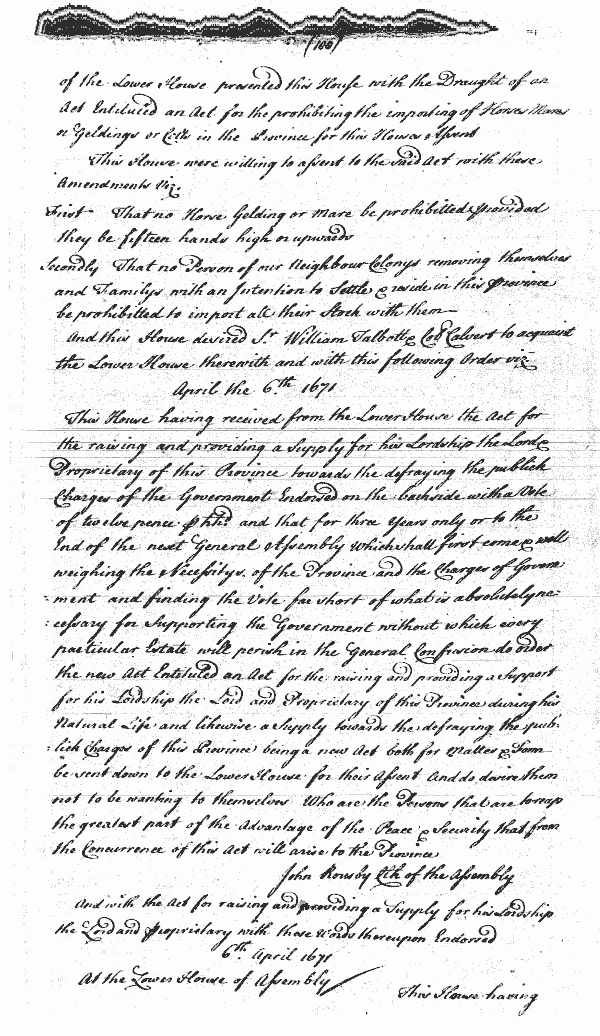 (188)
of the Lower House presented this House with the Draught of an
Act Entituled an Act for the prohibiting the importing of Horses Mares
or Geldings or Colts in the Province for this Houses Assent
This House were willing to assent to the said Act with these
Amendments Viz.
First That no Horse Gelding or Mare be prohibitted provided
they be fifteen hands high or upwards
Secondly That no Person of our Neighbour Colonys removing themselves
and Familys with an Intention to Settle & reside in this Province
be prohibitted to import all their Stock with them
And this House desired Sr. William Talbott & Coll Calvert to acquaint
the Lower House therewith and with this following Order viz
April the 6.th 1671
This House having received from the Lower House the Act for
the raising and providing a Supply for his Lordship the Lord &
Proprietary of this Province towards the defraying the publick
Charges of the Government Endorsed on the backside with a Vote
of twelve pence p hhd and that for three Years only or to the
End of the next General Assembly which shall first come & well
weighing the Necessitys. of the Province and the Charges of Govern
ment and finding the Vote far short of what is absolutely ne:
:cessary for Supporting the Government without which every
particular Estate will perish in the General Confusion do order
the new Act Entituled an Act for the raising and providing a Support
for his Lordship the Lord and Proprietary of this Province during his
Natural Life and likewise a Supply towards the defraying the pub:
:lick Charges of this Province being a new Act both for Matter & Form
be sent down to the Lower House for their Assent And do desire them
not to be wanting to themselves Who are the Persons that are to reap
the greatest part of the Advantage of the Peace & Security that from
the Concurrence of this Act will arise to the Province
John Rousby Clk of the Assembly
And with the Act for raising and providing a Supply for his Lordship
the Lord and Proprietary with these Words thereupon Endorsed
6th. April 1671
At the Lower House of Assembly
This House having